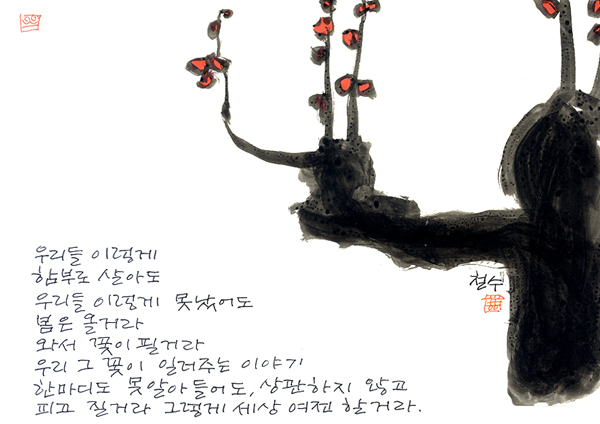 우리들 이렇게
함부로 살아도
우리들 이렇게 못났어도
봄은 올거라
와서 꽃이 필거라
우리 그 꽃이 일러주는 이야기
한마디도 못알아들어도, 상관하지 않고
피고 질거라 그렇게 세상 여전 할거라.
철수